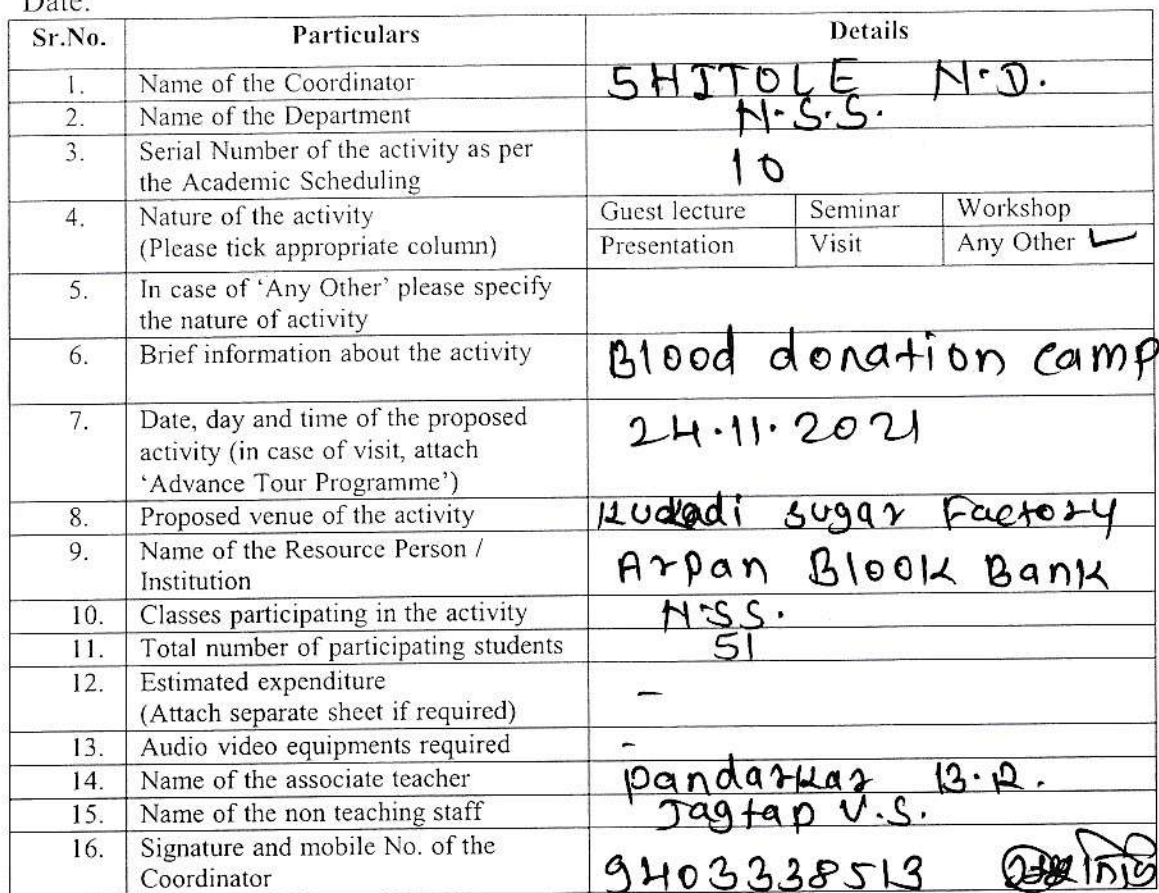 Date.
Sr.No. Particulars Details
1. Name of the Coordinator SHITOLE N.D.
2. Name of the Department N.S.S.
3. Serial Number of the activity as per
the Academic Scheduling 10
4. Nature of the activity Guest lecture Seminar Workshop
(Please tick appropriate column) Presentation Visit Any Other ✓
5. In case of ‘Any Other’ please specify
the nature of activity
6. Brief information about the activity Blood donation camp
7. Date, day and time of the proposed 24.11.2021
activity (in case of visit, attach
‘Advance Tour Programme’)
8. Proposed venue of the activity Kukadi sugar Factory
9. Name of the Resource Person /
Institution Arpan Blook Bank
10. Classes participating in the activity N.S.S.
11. Total number of participating students 51
12. Estimated expenditure –
(Attach separate sheet if required)
13. Audio video equipments required -
14. Name of the associate teacher Pandarkar B.R.
15. Name of the non teaching staff Jagtap V.S.
16. Signature and mobile No. of the
Coordinator 9403338513